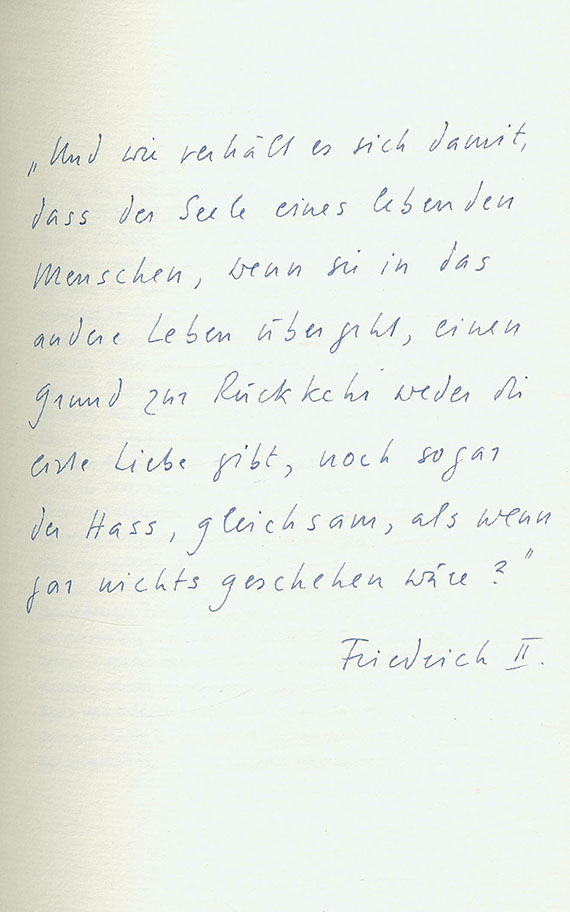 „Und wie verhält es sich damit,
dass der Seele eines lebenden
Menschen, wenn sie in das
andere Leben übergeht, einen
Grund zur Rückkehr weder die
erste Liebe gibt, noch sogar
der Hass, gleichsam, als wenn
gar nichts geschehen wäre?"
Friedrich II.